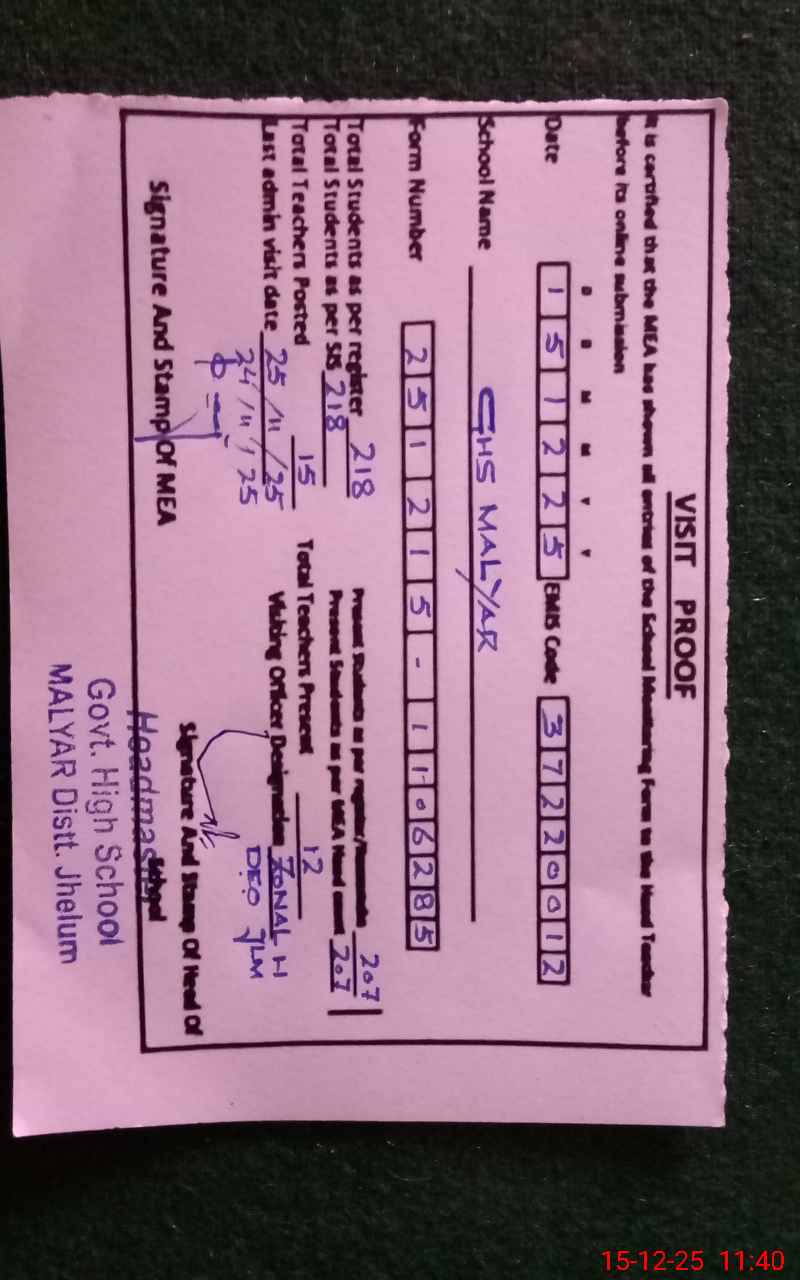 VISIT PROOF
It is certified that the MEA has shown all entries of the School Monitoring Form to the Head Teacher
before its online submission
D D M M Y Y
Date 1 5 1 2 2 5 EMIS Code 3 7 2 2 0 0 1 2
School Name GHS MALYAR
Form Number 2 5 1 2 1 5 - 1 1 0 6 2 8 5
Total Students as per register 218 Present Students as per register/ 207
Total Students as per SIS 218 Present Students as per MEA Head count 207
Total Teachers Posted 15 Total Teachers Present 12
Last admin visit date 25/11/25 Visiting Officer Designation ZONAL H
24/11/25 DEO JLM
Signature And Stamp Of MEA Signature And Stamp Of Head Of
School
Headmaster
Govt. High School
MALYAR Distt. Jhelum
15-12-25 11:40